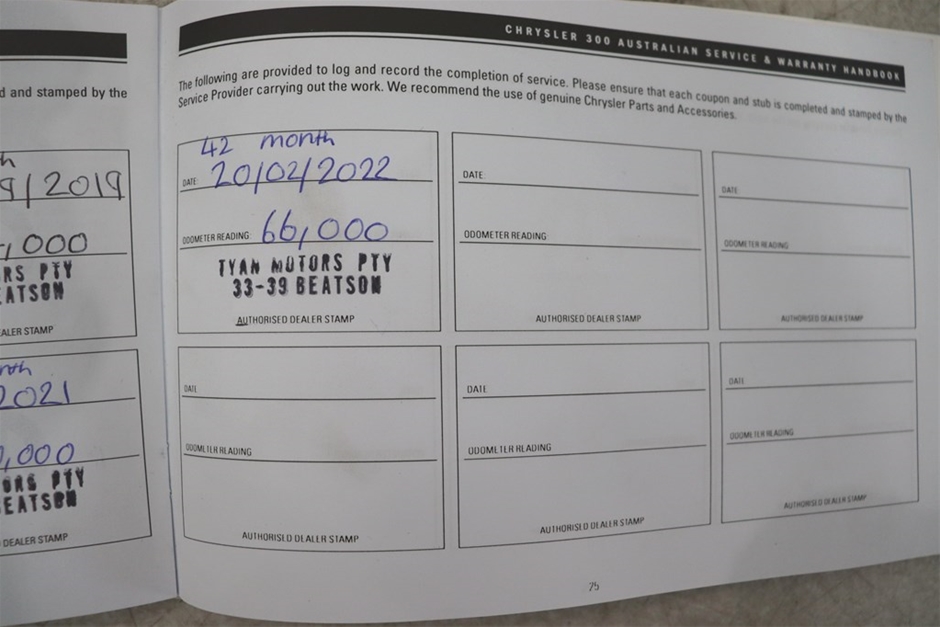 d and stamped by the
9/2019
,000
RS PTY
EATSON
ALER STAMP
2021
,000
ORS PTY
EATSON
DEALER STAMP
CHRYSLER 300 AUSTRALIAN SERVICE & WARRANTY HANDBOOK
The following are provided to log and record the completion of service. Please ensure that each coupon and stub is completed and stamped by the
Service Provider carrying out the work. We recommend the use of genuine Chrysler Parts and Accessories.
42 month
DATE: 20/02/2022
ODOMETER READING: 66,000
TYAN MOTORS PTY
33-39 BEATSON
AUTHORISED DEALER STAMP
DATE:
ODOMETER READING:
AUTHORISED DEALER STAMP
DATE
ODOMETER READING
AUTHORISED DEALER STAMP
DATE
ODOMETER READING
AUTHORISED DEALER STAMP
DATE
ODOMETER READING
AUTHORISED DEALER STAMP
DATE
ODOMETER READING
AUTHORISED DEALER STAMP
25